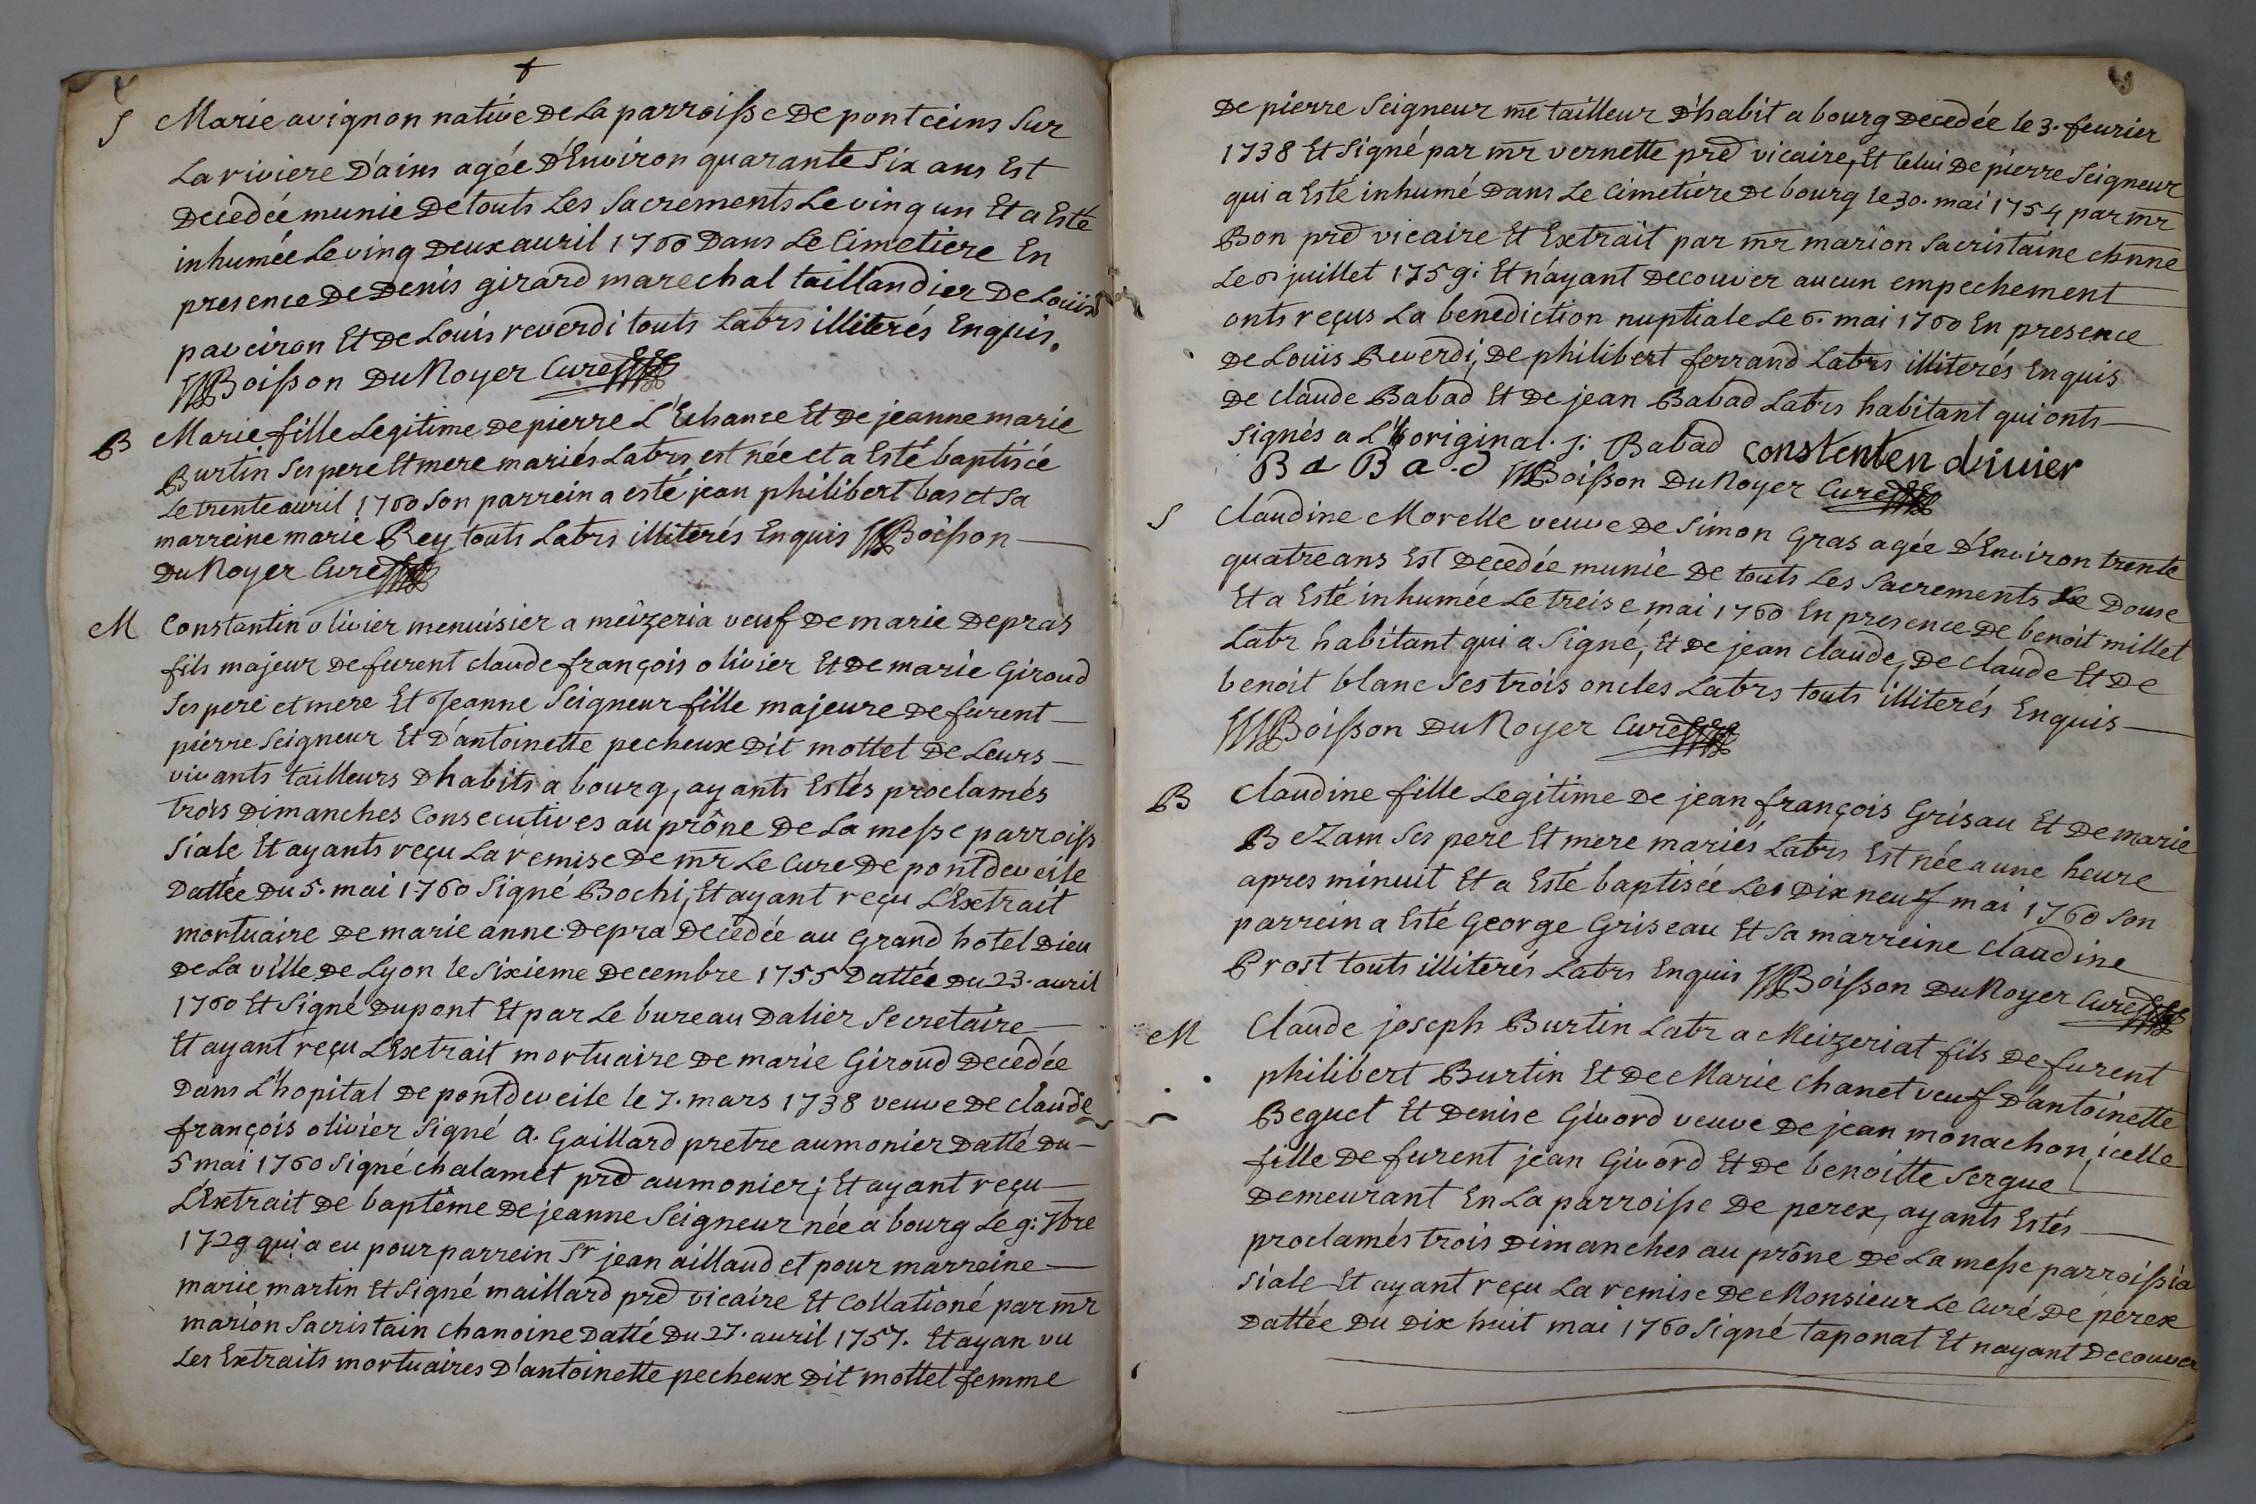 S Marie avignon native De La parroisse De pont ceins Sur
La riviere D'ains agée D'Environ quarante Six ans Est
Decedée munie De touts Les Sacrements Le ving un Et a Esté
inhumée Le ving Deux auril 1760 Dans Le Cimetiere En
presence De Denis girard marechal taillandier De Loüis
paveiron Et De Louis reverdi touts Labrs illiterés Enquis.
Boisson Du Noyer Curé
B Marie fille Legitime De pierre L'Echanre Et De jeanne marie
Burtin Ses pere Et mere mariés Labrs est née et a Esté baptisée
Le trente auril 1760 Son parrein a esté jean philibert bas et Sa
marreine marie Rey touts Labrs illiterés Enquis Boisson
Du Noyer Curé
M Constantin olivier menuisier a meizeria veuf De marie Depras
fils majeur Defurent claude françois olivier Et De marie Giroud
Ses pere et mere Et Jeanne Seigneur fille majeure Defurent
pierre Seigneur Et D'antoinette pecheux Dit mottet De Leurs
vivants tailleurs Dhabits a bourg, ayants Estés proclamés
trois Dimanches Consecutives au prône De La messe parroiss
siale Et ayants reçu La remise De mr Le Cure De pontdeveile
Dattée Du 5. mai 1760 Signé Bochi, Et ayant reçu L'Extrait
mortuaire De marie anne Depra Decedée au Grand hotel Dieu
De La ville De Lyon le Sixieme Decembre 1755 Dattée Du 23. auril
1760 Et Signé Dupont Et par Le bureau Dalier Secretaire
Et ayant reçu L'Extrait mortuaire De marie Giroud Decedée
Dans L'hopital De pontdeveile le 7. mars 1738 veuve De claude
françois olivier Signé a. Gaillard pretre aumonier Datté Du
5 mai 1760 Signé chalamet pred aumonier; Et ayant reçu
L'Extrait De baptême De jeanne Seigneur née a bourg Le 9: 7bre
1729 qui a eu pour parrein Sr jean aillaud et pour marreine
marie martin Et Signé maillard pred vicaire Et Collationé par mr
marion Sacristain chanoine Datté Du 27. auril 1757. Et ayan vu
Les Extraits mortuaires D'antoinette pecheux Dit mottet femme
De pierre Seigneur me tailleur D'habit a bourg Decedée le 3. feurier
1738 Et Signé par mr vernette pred vicaire, Et Celui De pierre Seigneur
qui a Esté inhumé Dans Le Cimetière De bourg le 30. mai 1754 par mr
Bon pred vicaire Et Extrait par mr marion Sacristaine chnne
Le juillet 1759: Et n'ayant Decouver aucun empechement
onts reçus La benediction nuptiale Le 6. mai 1760 En presence
De Loüis Reverdi, De philibert ferrand Labrs illiterés Enquis
De claude Babad Et De jean Babad Labrs habitant qui onts
Signés a L'original. j: Babad constenten oliuier
BaBad Boisson Du Noyer Curé
S Claudine Morelle veuve De Simon Gras agée D'Environ trente
quatre ans Est Decedée munie De touts Les Sacrements Le Douse
Et a Esté inhumée Le treise mai 1760 En presence De benoit millet
Labr habitant qui a Signé, Et De jean claude, De claude Et De
benoit blanc Ses trois oncles Labrs touts illiterés Enquis
Boisson Du Noyer Curé
B Claudine fille Legitime De jean françois Grisau Et De marie
BeZam Ses pere Et mere mariés Labrs Est née a une heure
apres minuit Et a Esté baptisée Le Dix neuf mai 1760 Son
parrein a Esté George Griseau Et Sa marreine claudine
Prost touts illiterés Labrs Enquis Boisson Du Noyer Curé
M Claude joseph Burtin Labr a Meizeriat fils Defurent
philibert Burtin Et De Marie chanet veuf D'antoinette
Beguet Et Denise Givord veuve De jean monachon, icelle
fille Defurent jean Givord Et De benoitte Sergue
Demeurant En La parroisse De perex, ayants Estés
proclamés trois Dimanches au prône De La messe parroissia
siale Et ayant reçu La remise De Monsieur Le Curé De perex
Dattée Du Dix huit mai 1760 Signé taponat Et nayant Decouver